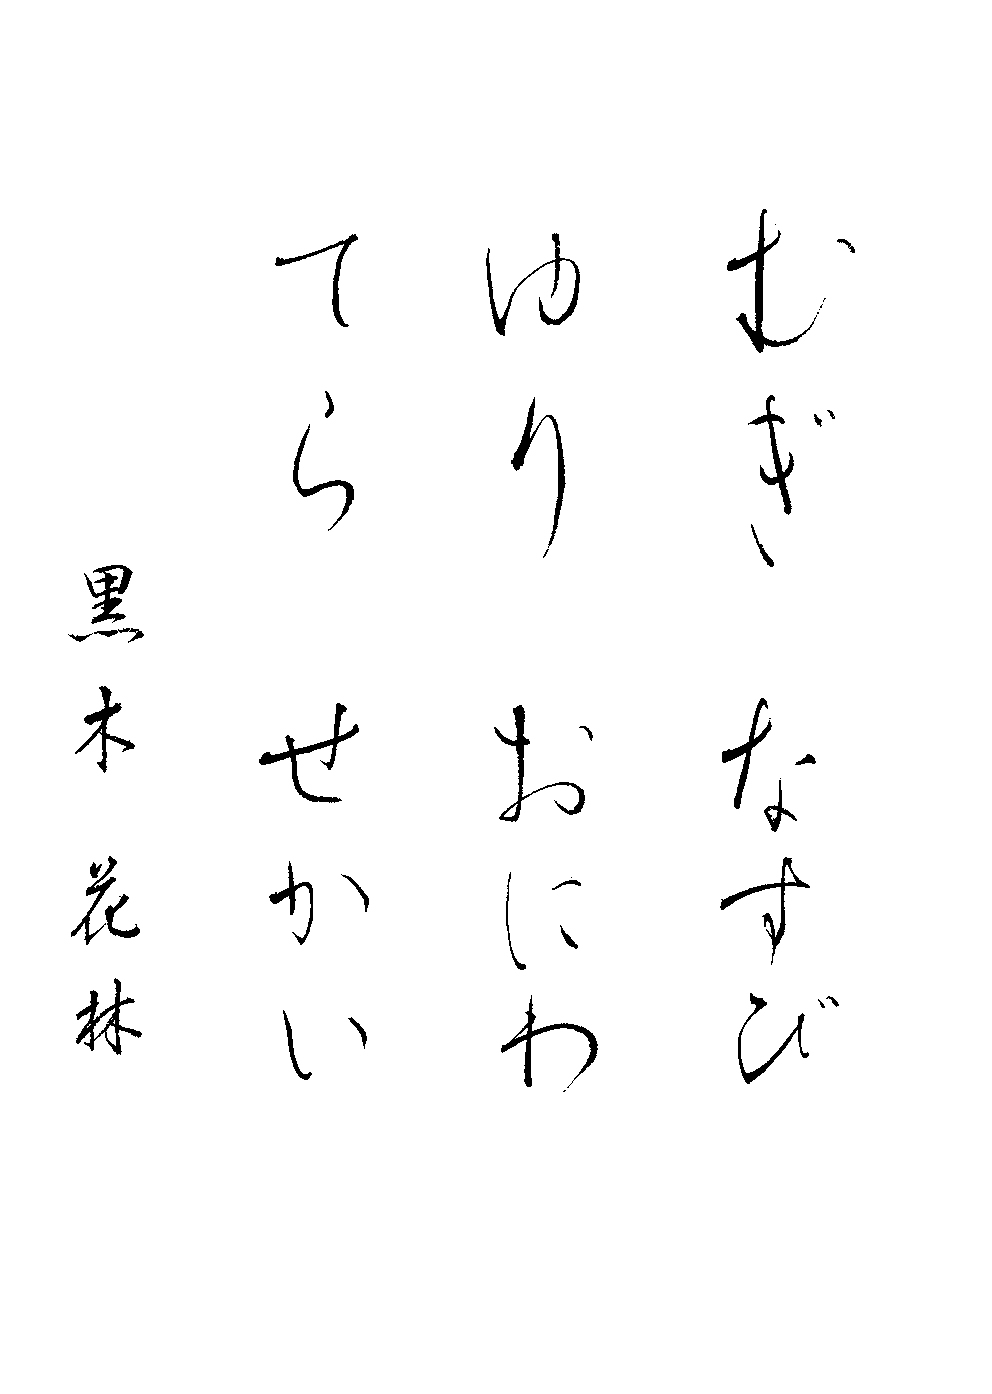 むぎ なすび
ゆり おにわ
てら せかい
黒木 花林